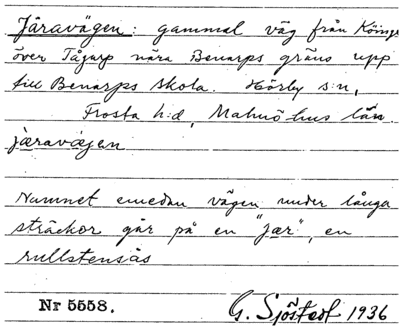 Järavägen: gammal väg från Köinge
över Tågarp nära Benarps gräns upp
till Benarps skola. Hörby s:n,
Frosta h:d, Malmöhus län.
jæravægen
Namnet emedan vägen under långa
sträckor går på en "jær", en
rullstensås
Nr 5558.
G. Sjöstedt 1936